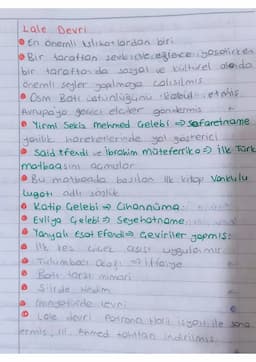 Lale Devri
En önemli ıslahatlardan biri
Bir taraftan zevk içinde eğlence yaşatırken
bir taraftan da sosyal ve kültürel alanda
önemli şeyler yapılmaya çalışılmış
Osm Batı üstünlüğünü kabul etmiş
Avrupaya geçici elçiler göndermiş
Yirmi Sekiz Mehmed Çelebi => Sefaretname
yenilik hareketlerinde yol gösterici
Said Efendi ve İbrahim Müteferrika => İlk Türk
matbaasını açmışlar
Bu matbaada basılan ilk kitap Vankulu
Lugatı adlı sözlük
Katip Çelebi => Cihannüma
Evliya Çelebi => Seyahatname
Yanyalı Esat Efendi => Çeviriler yapmış
İlk kez çiçek aşısı uygulanmış
Tulumbacı Ocağı => İtfaiye
Batı tarzı mimari
Şiirde Nedim
Minyatürde Levni
Lale devri Patrona Halil isyanı ile sona
ermiş, III. Ahmed tahttan indirilmiş